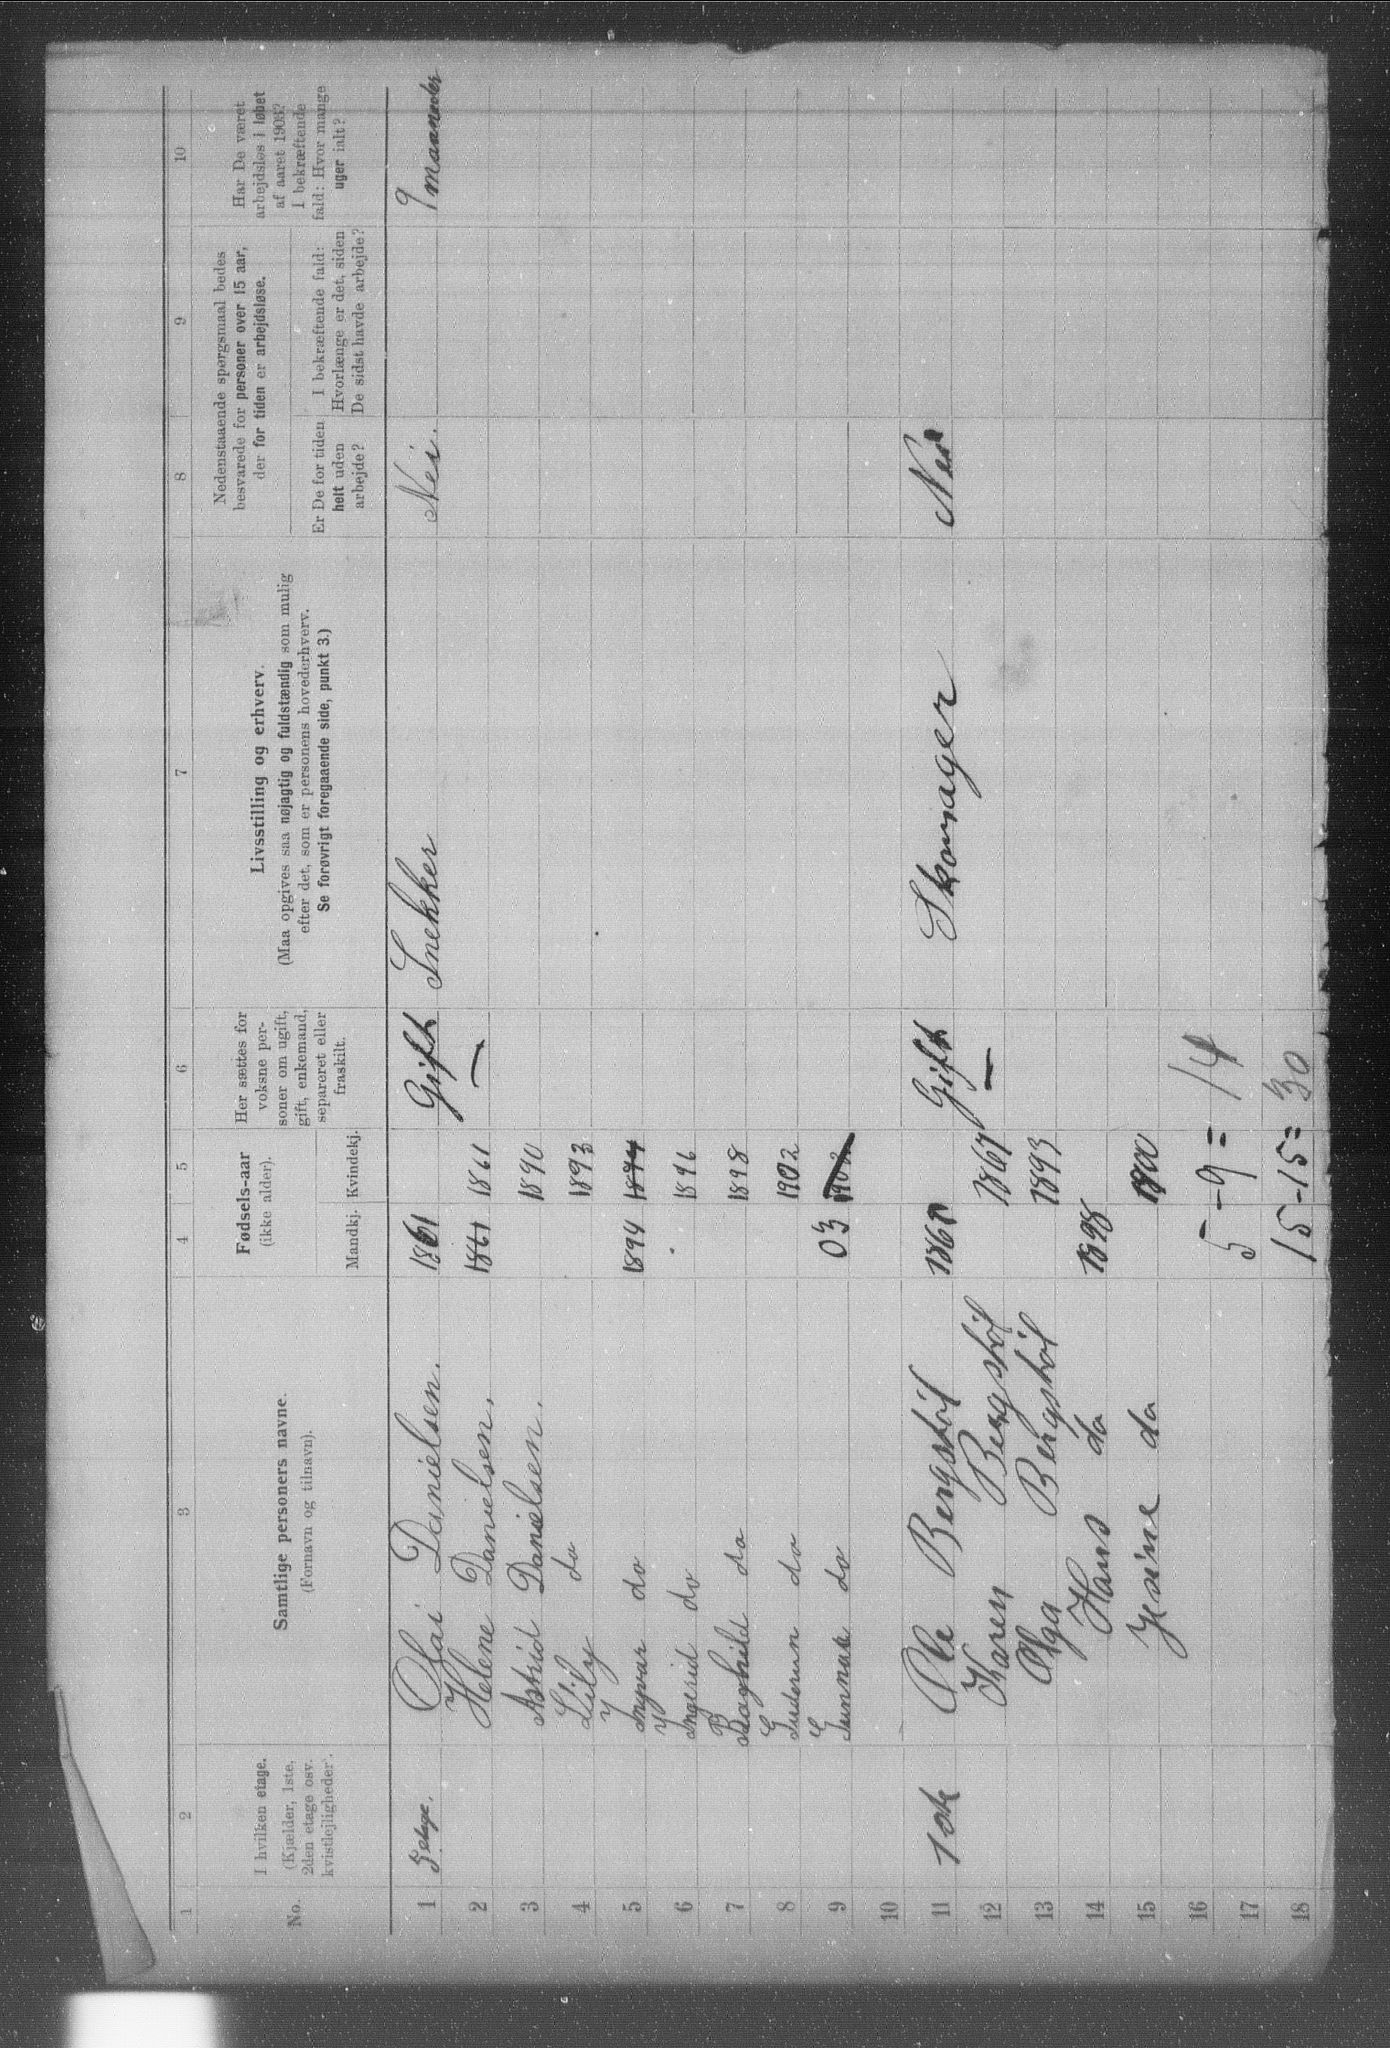 1 2 3 4 5 6 7 8 9 10
No.
I hvilken etage.
(Kjælder, 1ste,
2den etage osv.
kvistlejligheder).
Samtlige personers navne.
(Fornavn og tilnavn).
Fødsels-aar
(ikke alder).
Mandkj. Kvindekj.
Her sættes for
voksne per-
soner om ugift,
gift, enkemand,
separeret eller
fraskilt.
Livsstilling og erhverv.
(Maa opgives saa nøjagtig og fuldstændig som mulig
efter det, som er personens hovederhverv.
Se forøvrigt foregaaende side, punkt 3.)
Nedenstaaende spørgsmaal bedes
besvarede for personer over 15 aar,
der for tiden er arbejdsløse.
Er De for tiden
helt uden
arbejde?
I bekræftende fald:
Hvorlænge er det, siden
De sidst havde arbejde?
Har De været
arbejdsløs i løbet
af aaret 1903?
I bekræftende
fald: Hvor mange
uger ialt?
1 etage. Olai Danielsen. 1861 Gift Snekker Nei. 9 maaneder
2 Helene Danielsen. 1861 1861 —
3 Astrid Danielsen. 1890
4 Lily do 1893
5 Ingvar do 1894 1894
6 Ingerid do 1896
7 Borghild do 1898
8 Guderun do 1902
9 Gunnar do 03
10
11 1ste Ole Bergstøl Gift Skomager Nei
12 Karen Bergstøl 1867 —
13 Olga Bergstøl 1893
14 Hans do 1898
15 Jesine do 1900
16 5-9 = 14
17
18 15-15 = 30